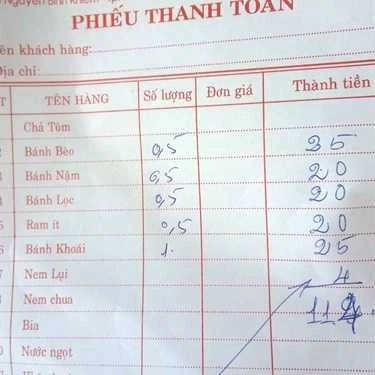 Nguyễn Bỉnh Khiêm
PHIẾU THANH TOÁN
ên khách hàng:
Địa chỉ:
T TÊN HÀNG Số lượng Đơn giá Thành tiền
Chả Tôm
Bánh Bèo 0,5 25
Bánh Nậm 0,5 20
Bánh Lọc 0,5 20
Ram ít 0,5 20
6 Bánh Khoái 1. 25
7 Nem Lụi 4
Nem chua 114
Bia
Nước ngọt